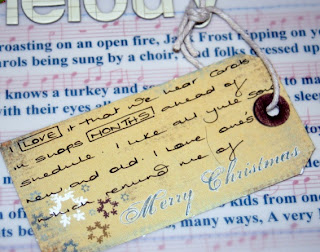 elody
roasting on an open fire, Jack Frost nipping on yo
arols being sung by a choir, And folks dressed up
knows a turkey and so
with their eyes all
I LOVE it that we hear carols
in shops MONTHS ahead of
schedule. I like all yule song
new and old. I love one's
which remind me of
Merry Christmas
kids from one
times, many ways, A very M